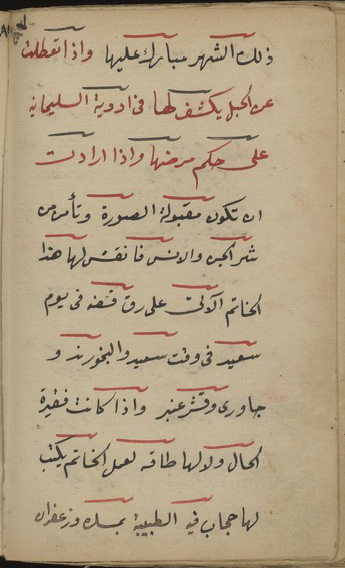 ذلك الشهر مبارك عليها واذا تعطلت
عن الحبل يكشف لها فى ادوية السليمانيه
على حكم مرضها واذا ارادت
ان تكون مقبولة الصورة وتأمن من
شر الجن والانس فانقش لها هذا
الخاتم الآتى على رق فضه فى يوم
سعيد فى وقت سعيد والبخور ند و
جاورى وقشر عنبر واذا كانت فقيرة
الحال ولا لها طاقه لعمل الخاتم يكتب
لها حجاب فيه الطبيبة بمسك وزعفران